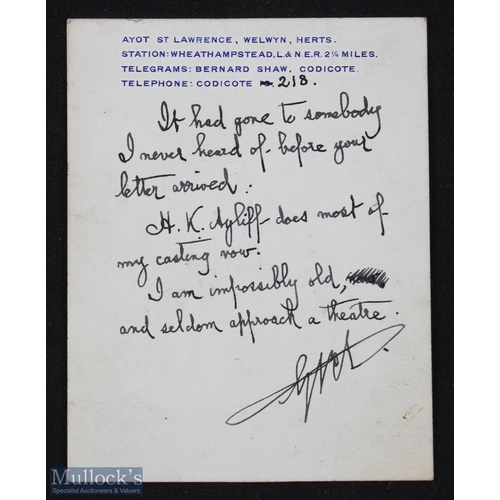 AYOT ST LAWRENCE, WELWYN, HERTS.
STATION: WHEATHAMPSTEAD, L & N.E.R. 2¼ MILES.
TELEGRAMS: BERNARD SHAW, CODICOTE.
TELEPHONE: CODICOTE 218.
It had gone to somebody
I never heard of before your
letter arrived.
H. K. Ayliff does most of
my casting now.
I am impossibly old,
and seldom approach a theatre.
Mullock's
Specialist Auctioneers & Valuers